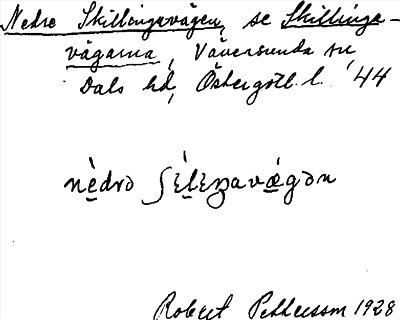 Nedre Skillingavägen, se Skillinga-
vägarna, Väversunda sn,
Dals hd, Östergötl. l. '44
nèdrə ʃɛ́lɛŋavæ̀gən
Robert Pettersson 1928